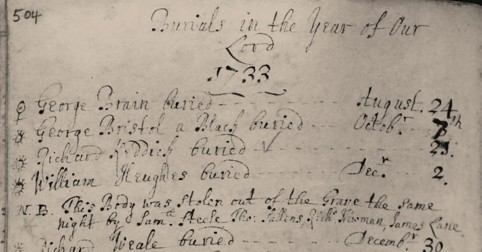 504
Burials in the Year of Our
Lord
1733
George Brain buried August 24th
George Bristol a Black buried Octobr 7
Richard buried 23.
William Heughes buried Decr 2.
N.B. This Body was stolen out of the Grave the same
night by Samll Steele Tho: Richd Newman, James Lane
Richard Weale buried Decembr 30